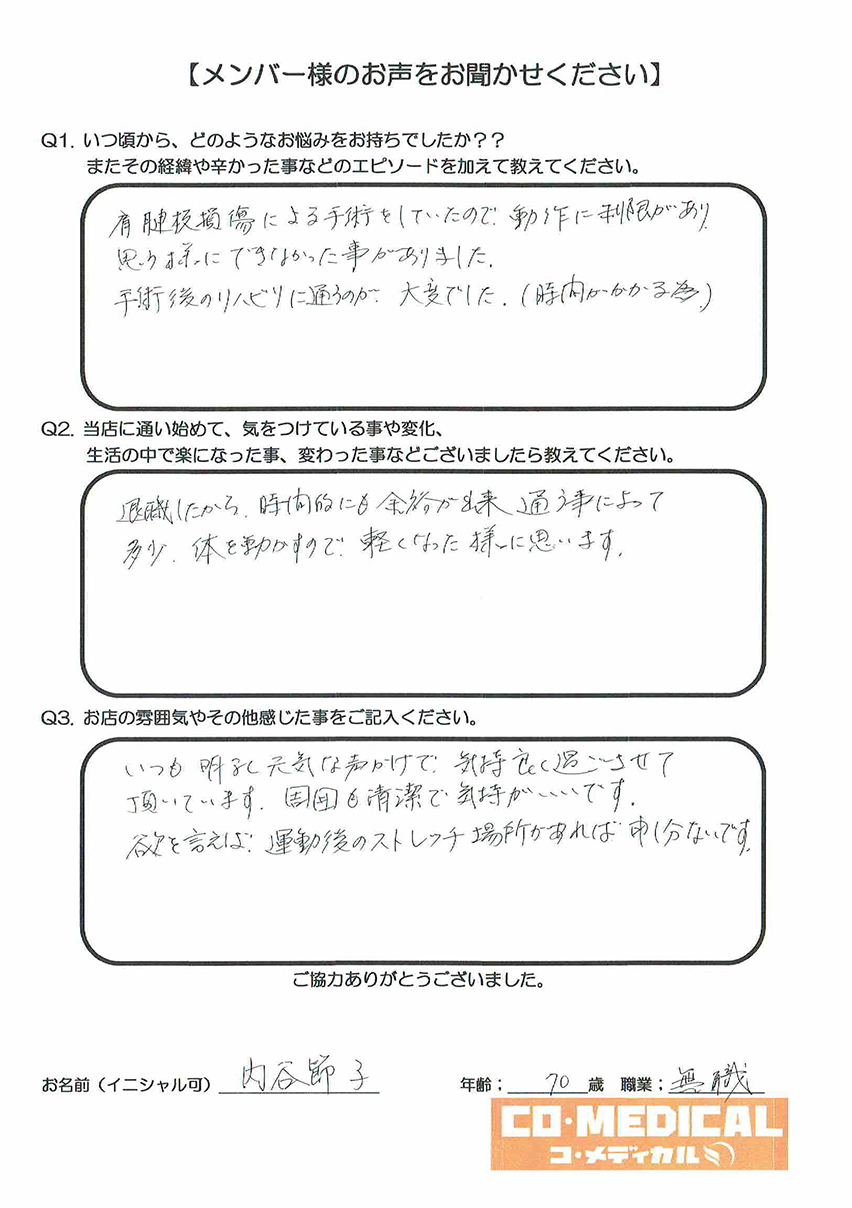 【メンバー様のお声をお聞かせください】
Q1. いつ頃から、どのようなお悩みをお持ちでしたか？？
またその経緯や辛かった事などのエピソードを加えて教えてください。
肩腱板損傷による手術をしていたので、動作に制限があり
思う様にできなかった事がありました。
手術後のリハビリに通うのが、大変でした。(時間がかかる為)
Q2. 当店に通い始めて、気をつけている事や変化、
生活の中で楽になった事、変わった事などございましたら教えてください。
退職したから、時間的にも余裕が出来 通う事によって
多少、体を動かすので、軽くなった様に思います。
Q3. お店の雰囲気やその他感じた事をご記入ください。
いつも 明るく元気な声かけで、気持良く過ごさせて
頂いています。周囲も清潔で気持がいいです。
欲を言えば、運動後のストレッチ場所があれば申し分ないです。
ご協力ありがとうございました。
お名前（イニシャル可） 内谷節子 年齢； 70 歳 職業； 無職
CO・MEDICAL
コ・メディカル